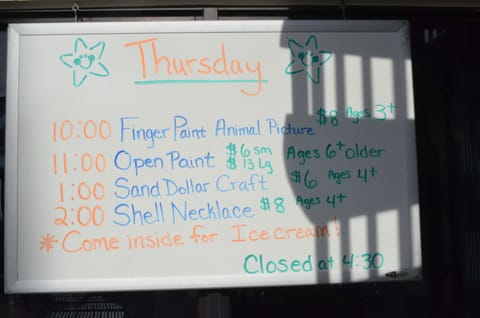 Thursday
10:00 Finger Paint Animal Picture $8 Ages 3+
11:00 Open Paint $6 sm $13 Lg Ages 6+ older
1:00 Sand Dollar Craft $6 Ages 4+
2:00 Shell Necklace $8 Ages 4+
* Come inside for Ice cream!
Closed at 4:30